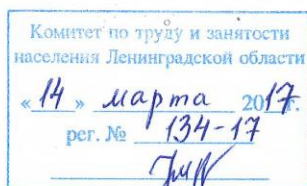 Комитет по труду и занятости
населения Ленинградской области
«14» марта 2017 г.
рег. № 134-17